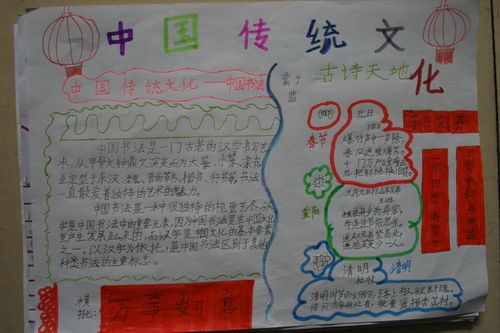 中国传统文化
中国传统文化——中国书法
中国书法是一门古老的汉字书写艺
术，从甲骨文、钟鼎文演变而为大篆、小篆、隶书，
至定型于东汉、魏、晋的草书、楷书、行书等，书法一
直散发着独特的艺术的魅力。
中国书法是一种很独特的视觉艺术，汉
字是中国书法中的重要元素，因为中国书法是在中国文化
里产生、发展起来的，而汉字是中国文化的基本要素
之一，以汉字为依托，是中国书法区别于其他
种类书法的主要标志。
横
批：
万事如意
古诗天地
春节
元日
爆竹声中一岁除，
春风送暖
千门万户
总把新桃换旧符。
重阳
九月九日忆山东兄弟
王维
独在异乡为异客，
每逢佳节倍思亲。
遥知兄弟登高处，
遍插茱萸少一人。
清明
清明
杜牧
清明时节雨纷纷，路上行人欲断魂。
借问酒家何处有，牧童遥指杏花村。